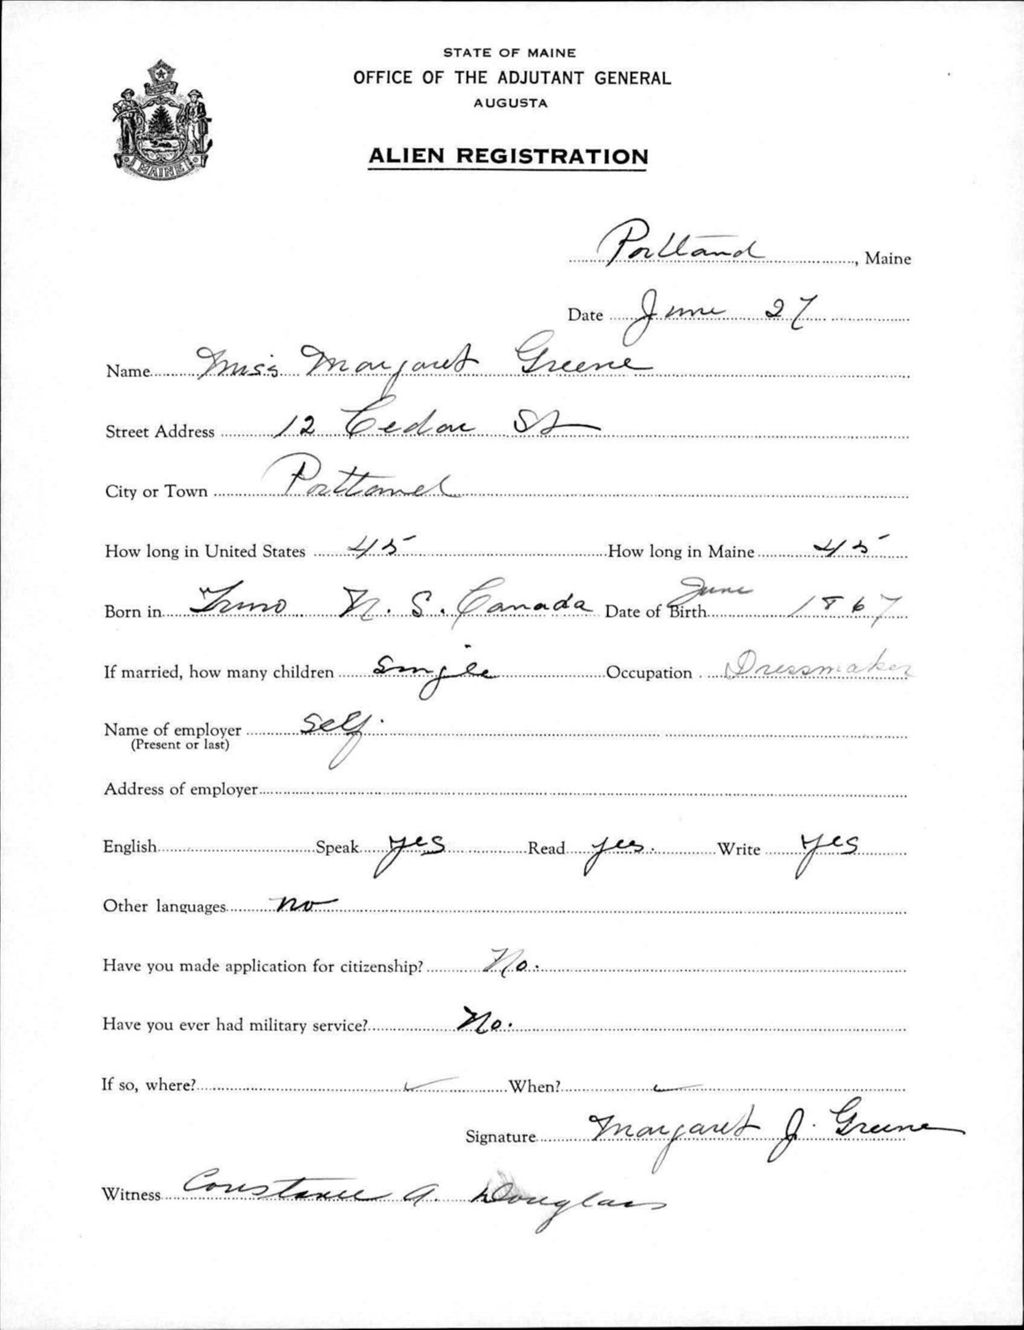 STATE OF MAINE
OFFICE OF THE ADJUTANT GENERAL
AUGUSTA
ALIEN REGISTRATION
MAINE
Portland, Maine
Date June 27
Name Miss Margaret Greene
Street Address 12 Cedar St
City or Town Portland
How long in United States 45 How long in Maine 45
Born in Truro N. S. Canada Date of Birth June 1867
If married, how many children Single Occupation Dressmaker
Name of employer Self.
(Present or last)
Address of employer
English Speak yes Read yes. Write yes
Other languages no
Have you made application for citizenship? No.
Have you ever had military service? No.
If so, where? When?
Signature Margaret J. Greene
Witness Constance A. Douglass